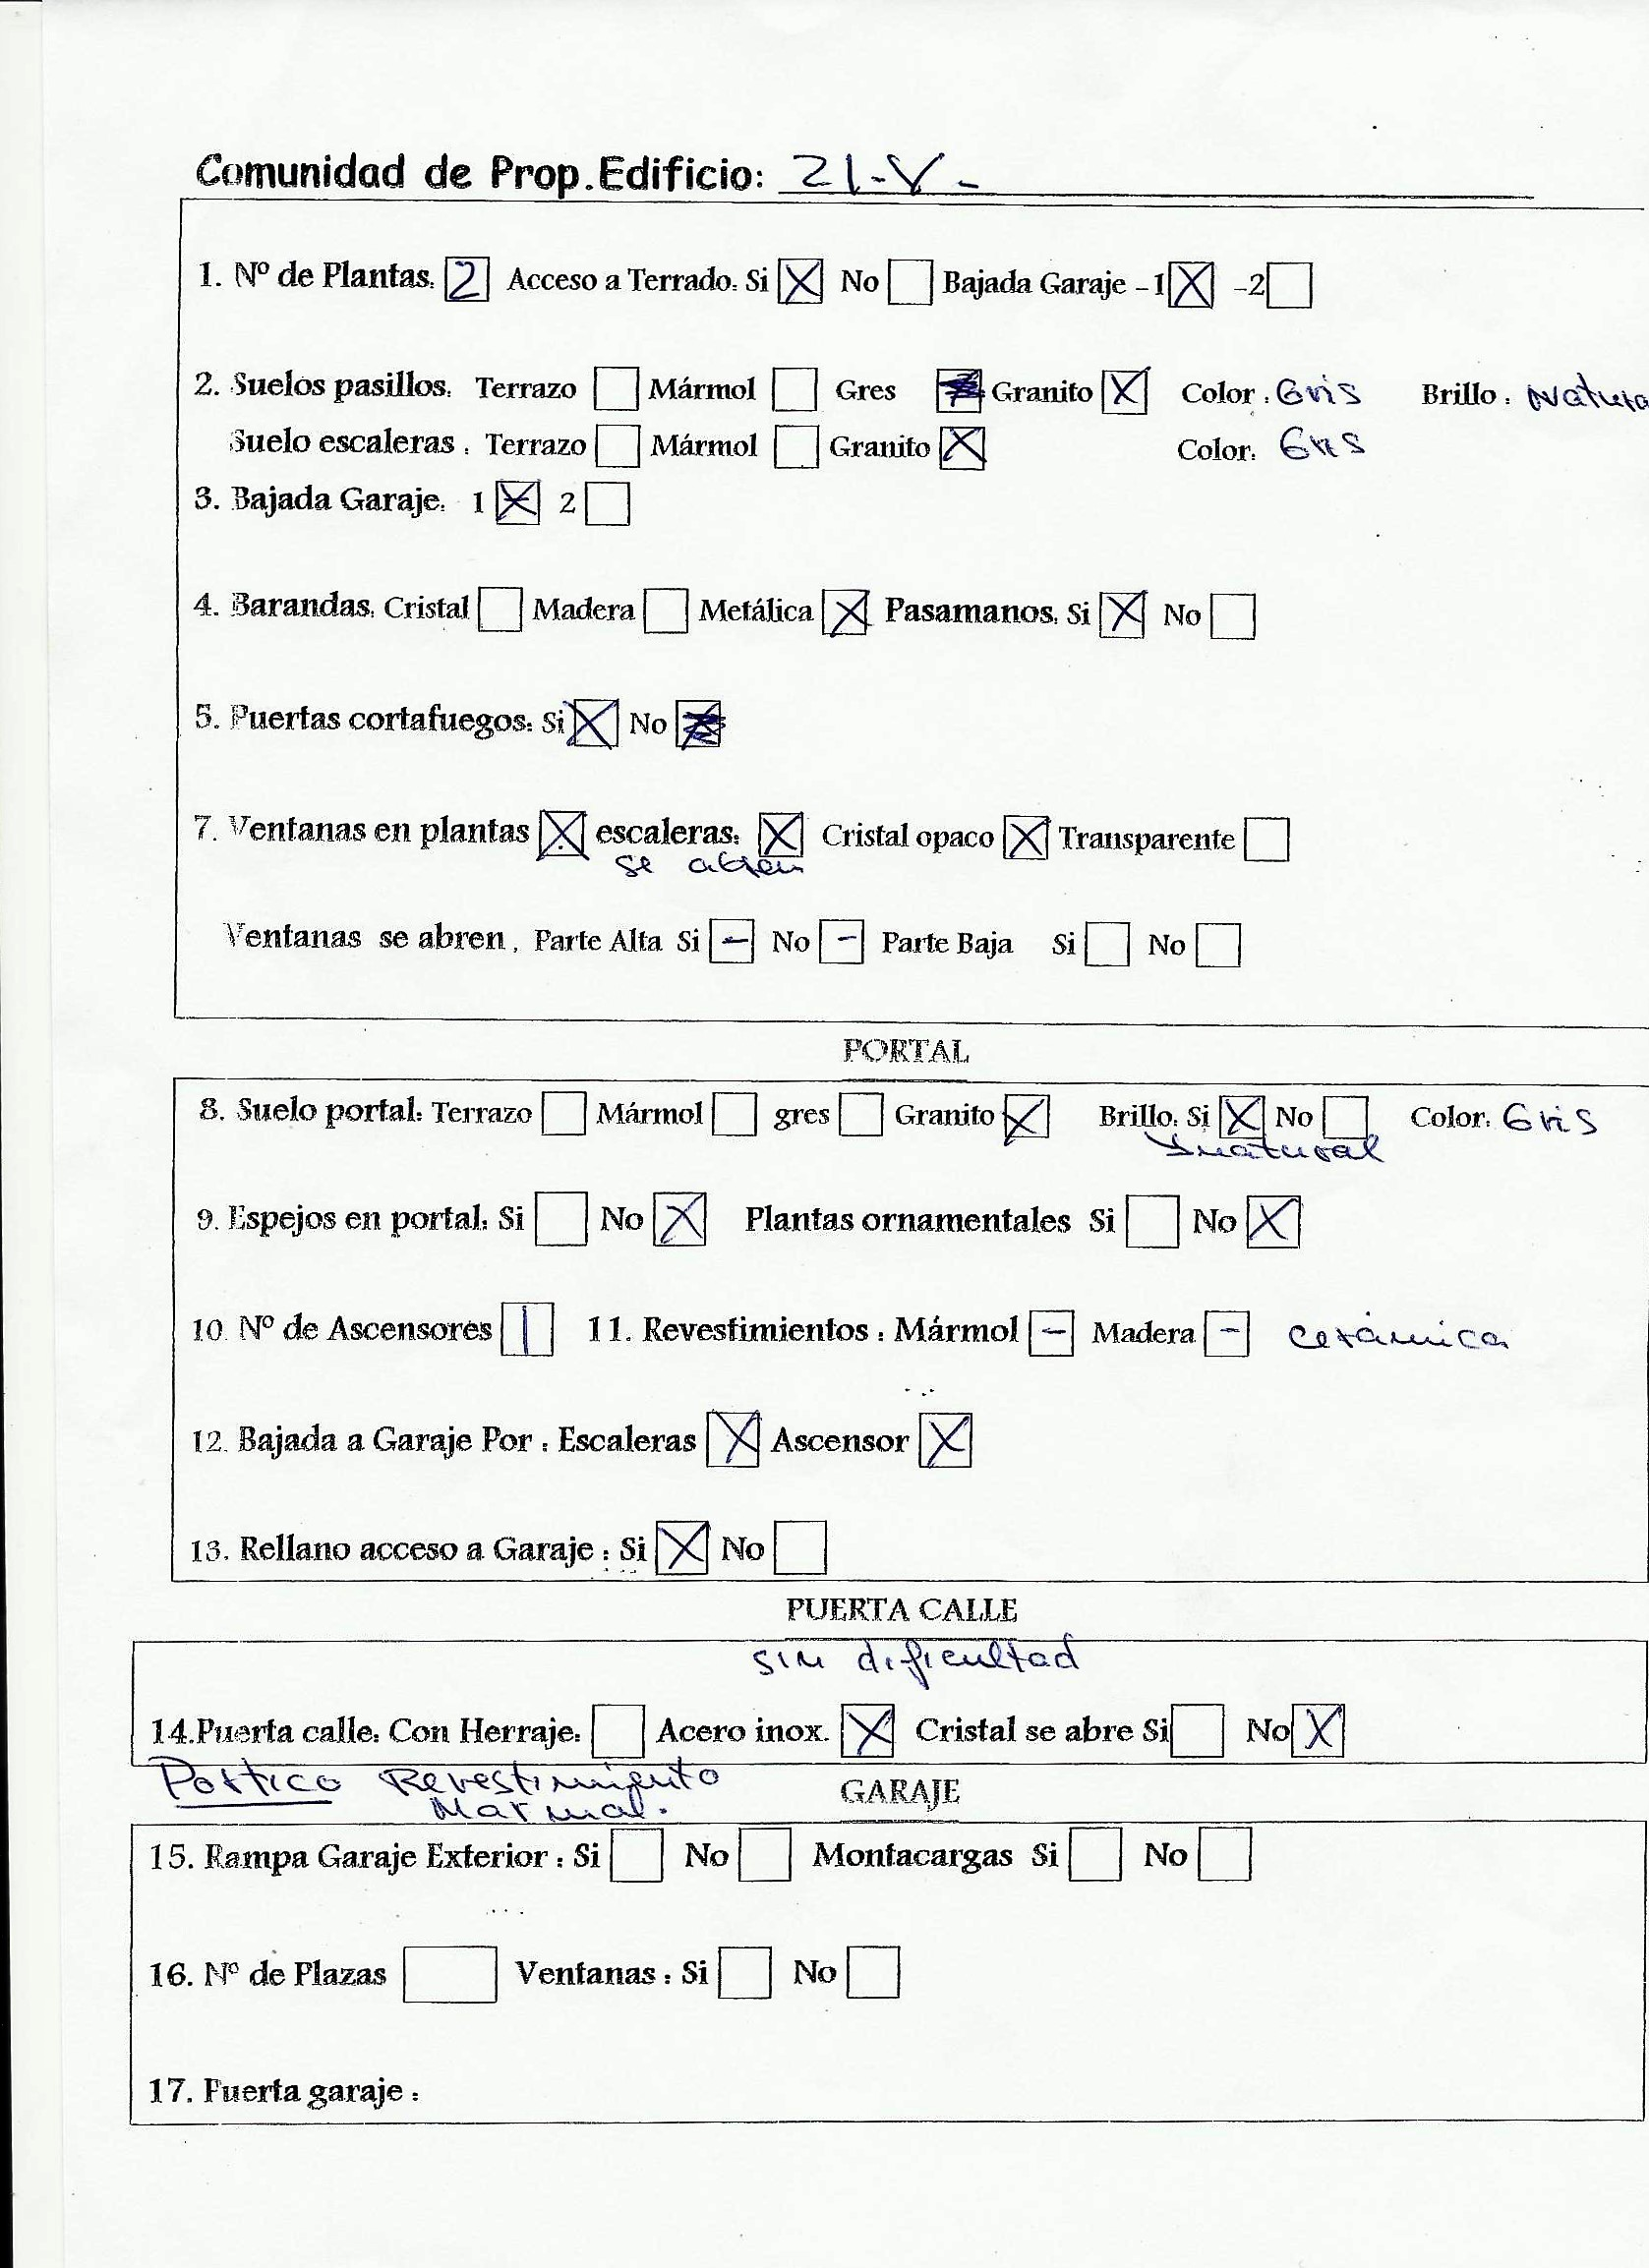 Comunidad de Prop.Edificio: 21-V-
1. Nº de Plantas: 2 Acceso a Terrado: Si X No Bajada Garaje -1 X -2
2. Suelos pasillos: Terrazo Mármol Gres Granito X Color: Gris Brillo: Natura
Suelo escaleras: Terrazo Mármol Granito X Color: Gris
3. Bajada Garaje: 1 X 2
4. Barandas: Cristal Madera Metálica X Pasamanos: Si X No
5. Puertas cortafuegos: Si X No
7. Ventanas en plantas X escaleras: X Cristal opaco X Transparente
se abren
Ventanas se abren, Parte Alta Si - No - Parte Baja Si No
PORTAL
8. Suelo portal: Terrazo Mármol gres Granito X Brillo: Si X No Color: Gris
natural
9. Espejos en portal: Si No X Plantas ornamentales Si No X
10. Nº de Ascensores 1 11. Revestimientos: Mármol - Madera - cerámica
12. Bajada a Garaje Por: Escaleras X Ascensor X
13. Rellano acceso a Garaje: Si X No
PUERTA CALLE
sin dificultad
14.Puerta calle: Con Herraje: Acero inox. X Cristal se abre Si No X
Portico Revestimiento
Marmol.
GARAJE
15. Rampa Garaje Exterior: Si No Montacargas Si No
16. Nº de Plazas Ventanas: Si No
17. Puerta garaje: